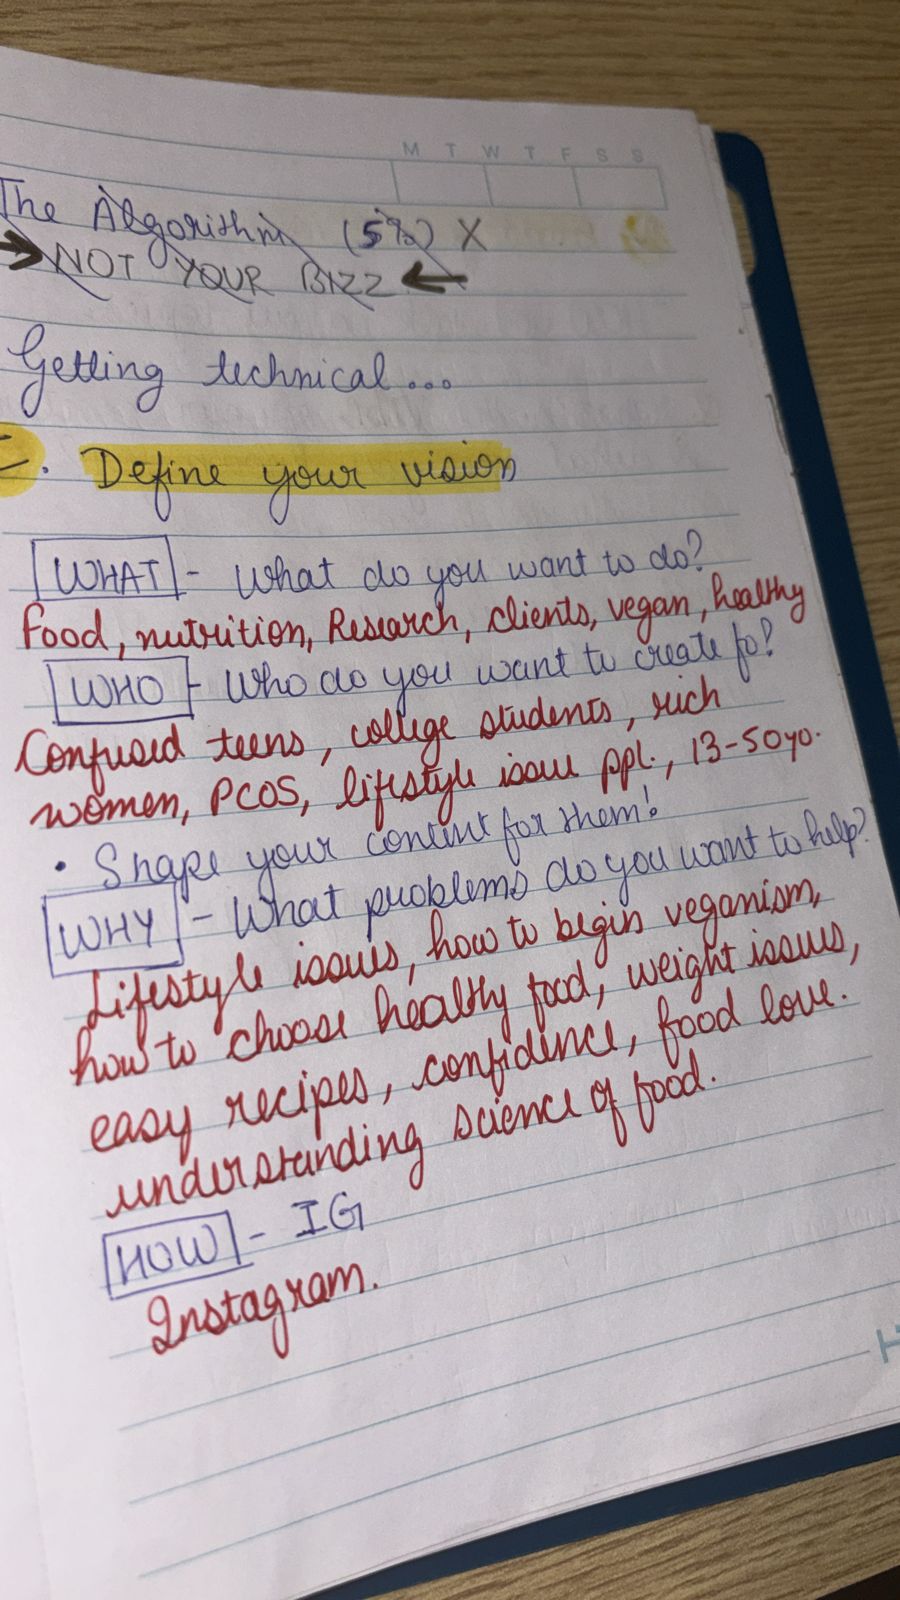 M T W T F S S
The Algorithm (5%) X
→ NOT YOUR BIZZ ←
Getting technical...
Define your vision
WHAT - What do you want to do?
Food, nutrition, Research, clients, vegan, healthy
WHO - Who do you want to create fo?
Confused teens, college students, rich
women, PCOS, lifestyle issue ppl., 13-50yo.
• Shape your content for them!
WHY - What problems do you want to help?
Lifestyle issues, how to begin veganism,
how to choose healthy food, weight issues,
easy recipes, confidence, food love.
understanding science of food.
HOW - IG
Instagram.